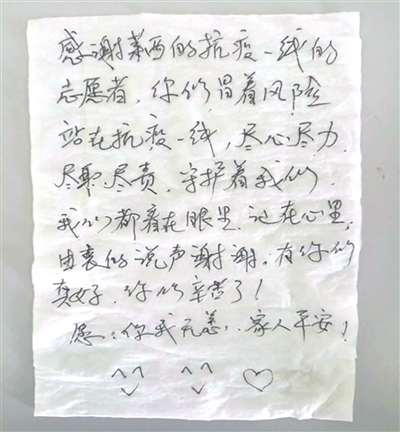 感谢莱西的抗疫一线的
志愿者，你们冒着风险
站在抗疫一线，尽心尽力
尽职尽责，守护着我们.
我们都看在眼里，记在心里，
由衷的说声谢谢。有你们
真好，你们辛苦了！
愿：你我无恙，家人平安！